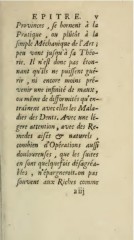 EPITRE. v
Provinces, se bornent à la
Pratique, ou plûtôt à la
simple Méchanique de l'Art;
peu vont jusqu'à sa Théo-
rie. Il n'est donc pas éton-
nant qu'ils ne puissent gué-
rir, ni encore moins pré-
venir une infinité de maux,
ou même de difformités qu'en-
traînent avec elles les Mala-
dies des Dents. Avec une lé-
gere attention, avec des Re-
medes aisés & naturels,
combien d'Opérations aussi
douloureuses, que les suites
en sont quelquefois désagréa-
bles, n'épargneroit-on pas
souvent aux Riches comme
a iij